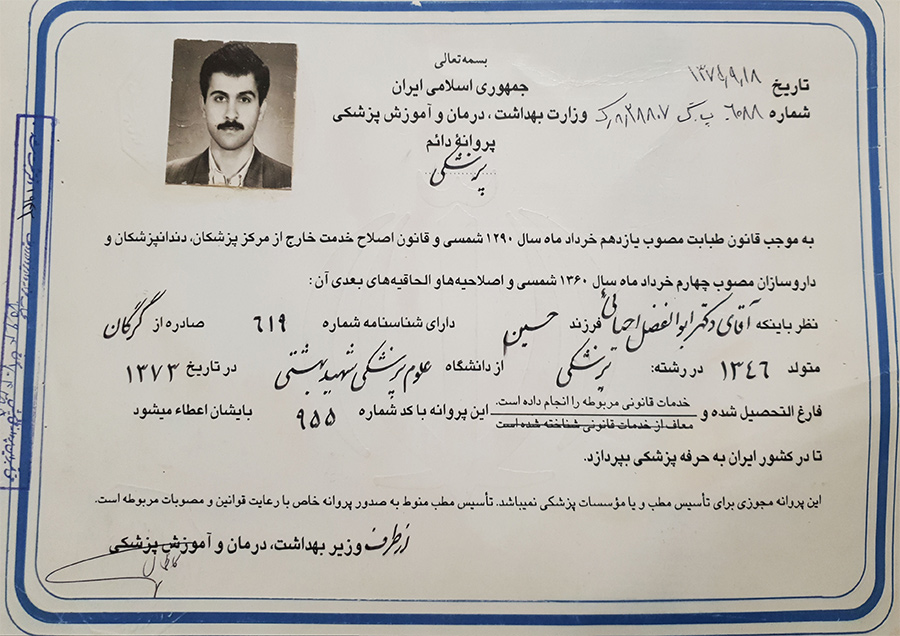 بسمه‌تعالی
جمهوری اسلامی ایران
تاریخ ۱۳۷۴٫۹٫۱۸
وزارت بهداشت، درمان و آموزش پزشکی
شماره ۶۰۸۸ پ.گ
پروانهٔ دائم
پزشکی
به موجب قانون طبابت مصوب یازدهم خرداد ماه سال ۱۲۹۰ شمسی و قانون اصلاح خدمت خارج از مرکز پزشکان، دندانپزشکان و
داروسازان مصوب چهارم خرداد ماه سال ۱۳۶۰ شمسی و اصلاحیه‌ها و الحاقیه‌های بعدی آن :
نظر باینکه آقای دکتر ابوالفضل فرزند حسین دارای شناسنامه شماره ۶۱۹ صادره از گرگان
متولد ۱۳۴۶ در رشته: پزشکی از دانشگاه علوم پزشکی شهید بهشتی در تاریخ ۱۳۷۳
فارغ التحصیل شده و خدمات قانونی مربوطه را انجام داده است.
معاف از خدمات قانونی شناخته شده است
این پروانه با کد شماره ۹۵۵ بایشان اعطاء میشود
تا در کشور ایران به حرفه پزشکی بپردازد.
این پروانه مجوزی برای تأسیس مطب و یا مؤسسات پزشکی نمیباشد. تأسیس مطب منوط به صدور پروانه خاص با رعایت قوانین و مصوبات مربوطه است.
از طرف وزیر بهداشت، درمان و آموزش پزشکی